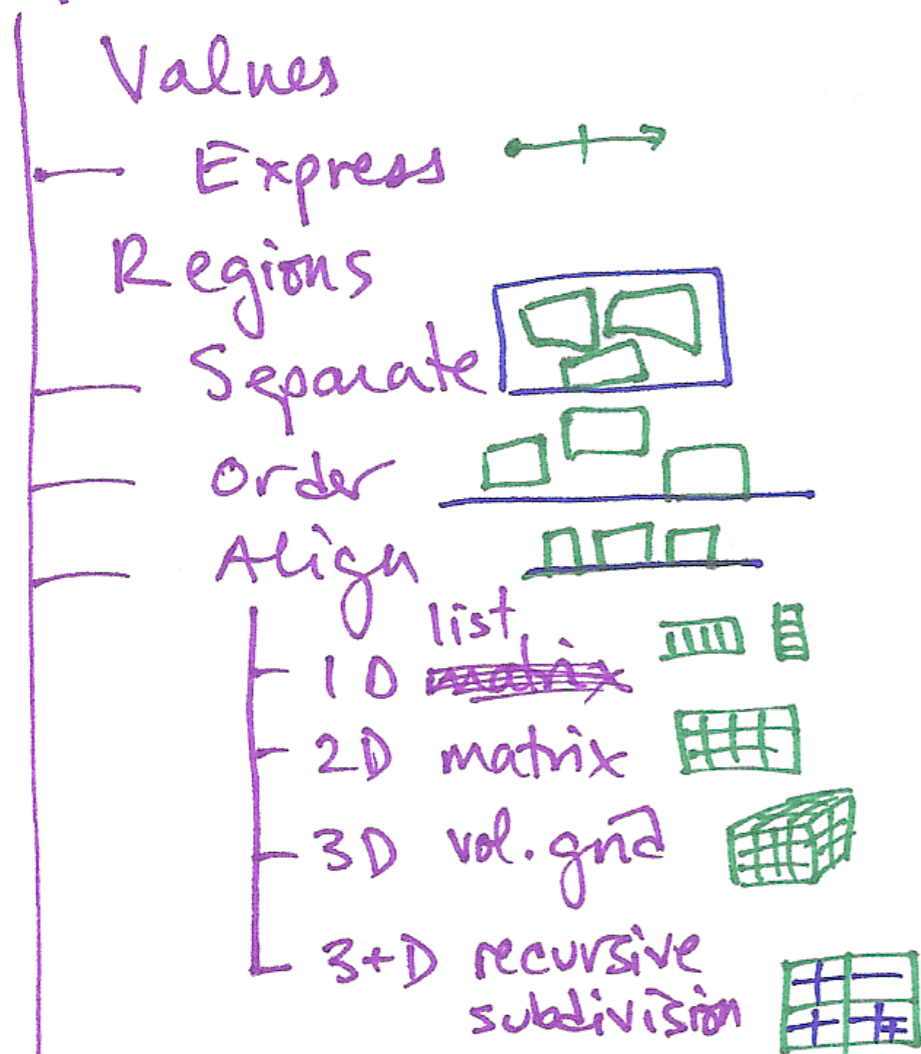 Values
Express
Regions
Separate
Order
Align
list
1D
2D matrix
3D vol. grid
3+D recursive
subdivision